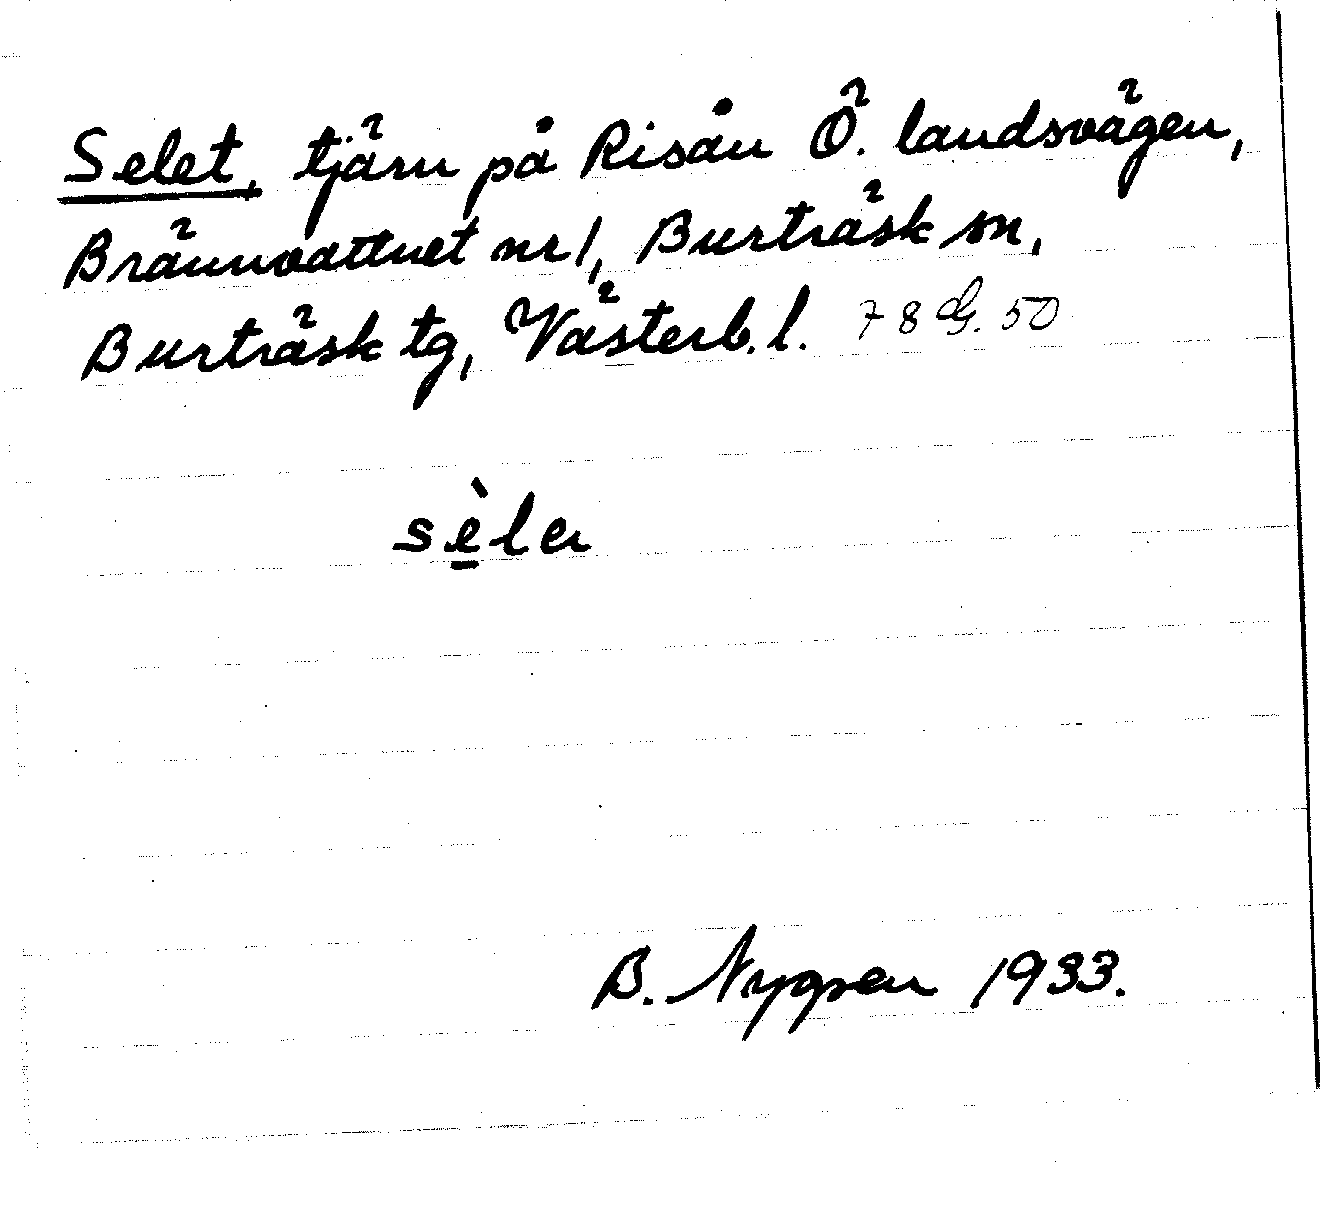 Selet, tjärn på Risån Ö. landsvägen,
Brännvattnet nr 1, Burträsk sn,
Burträsk tg, Västerb. l. 78 G. 50
sèlæ
B. Nygren 1933.